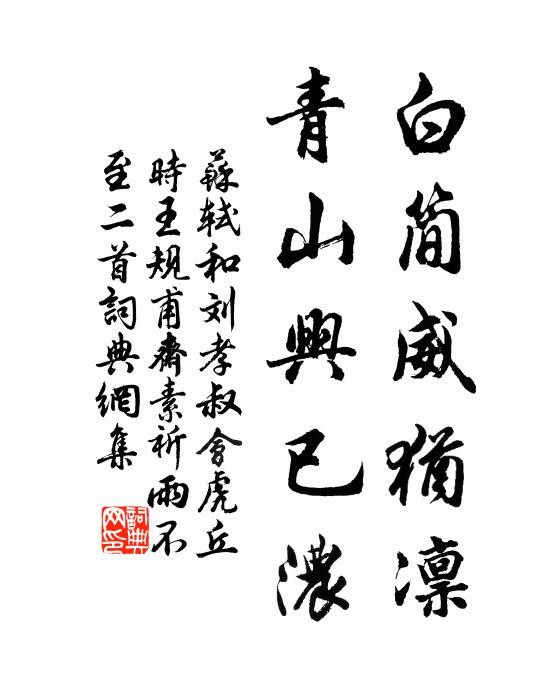 白简威猶凛
青山興已濃
蘇轼和刘孝叔會虎丘
時王规甫齋素祈雨不
至二首詞典網集
詞典
网印